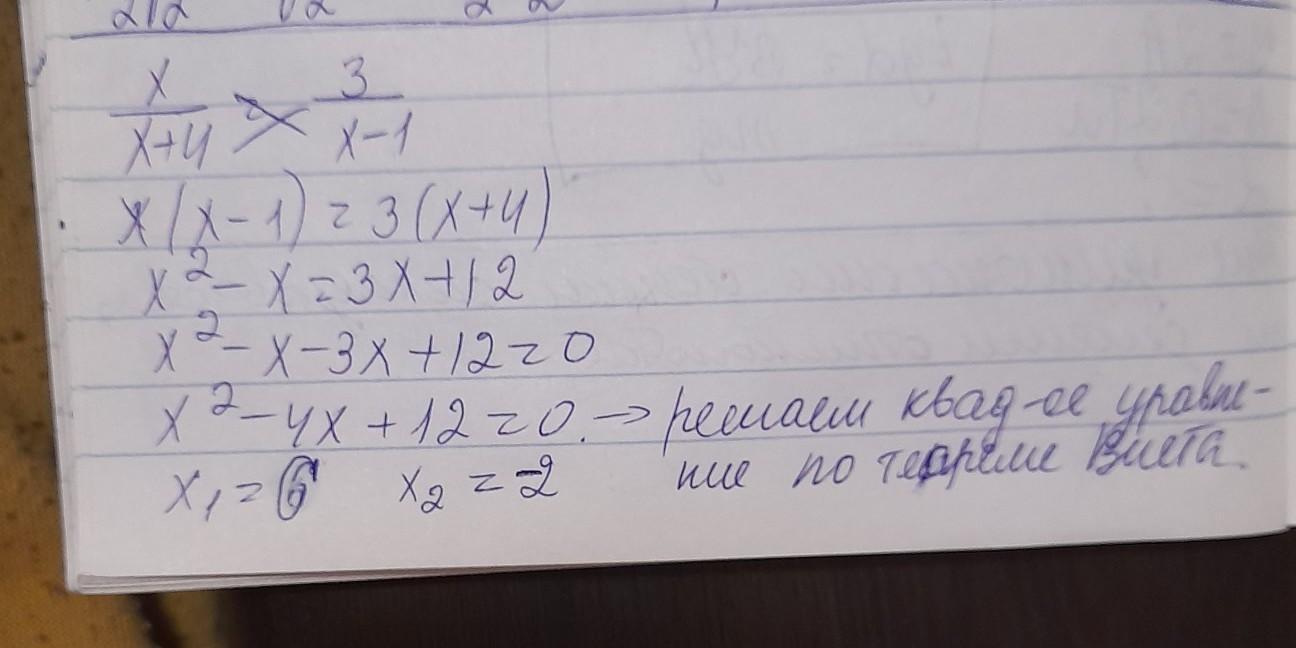 x/(x+4) = 3/(x-1)
x(x-1) = 3(x+4)
x² - x = 3x+12
x² - x - 3x + 12 = 0
x² - 4x + 12 = 0. → решаем квад-ое уравне-
ние по теореме Виета.
x₁ = 6 x₂ = -2